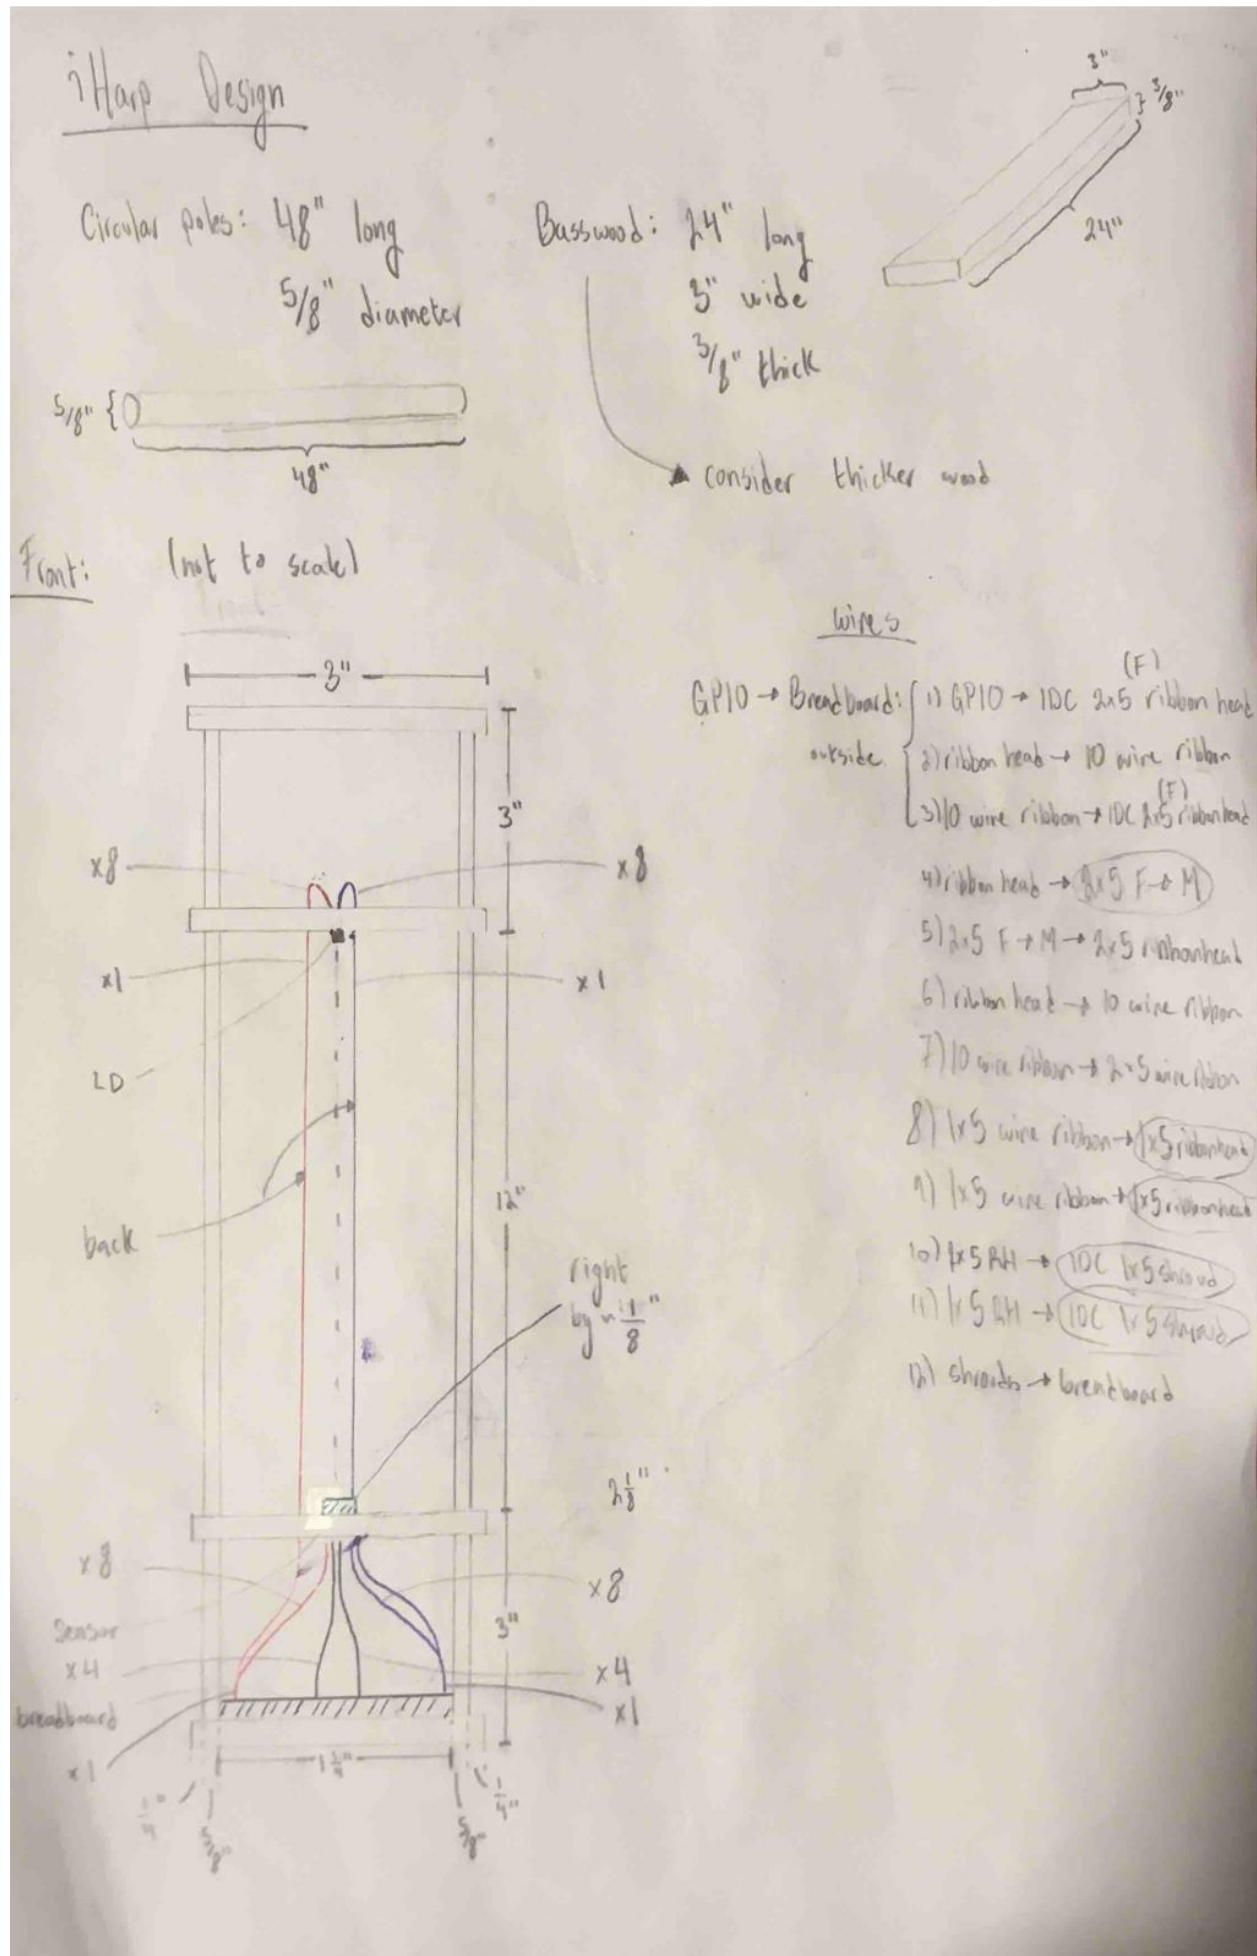 iHarp Design
Circular poles: 48" long
5/8" diameter
5/8"
48"
Basswood: 24" long
3" wide
3/8" thick
consider thicker wood
3"
3/8"
24"
Front: (not to scale)
Front
3"
3"
x8
x8
x1
x1
LD
12"
back
right
by ~ 1/8"
2 1/8"
x8
x8
Sensor
3"
x4
x4
breadboard
x1
x1
1 1/4"
1/4"
1/4"
5/8"
5/8"
wires
GPIO → Breadboard:
outside
(F)
1) GPIO → IDC 2x5 ribbon head
2) ribbon head → 10 wire ribbon
(F)
3) 10 wire ribbon → IDC 2x5 ribbonhead
4) ribbon head → 2x5 F → M
5) 2x5 F → M → 2x5 ribbonhead
6) ribbon head → 10 wire ribbon
7) 10 wire ribbon → 2x5 wire ribbon
8) 1x5 wire ribbon → 1x5 ribbonhead
9) 1x5 wire ribbon → 1x5 ribbonhead
10) 1x5 RH → IDC 1x5 shroud
11) 1x5 RH → IDC 1x5 shroud
12) shrouds → breadboard